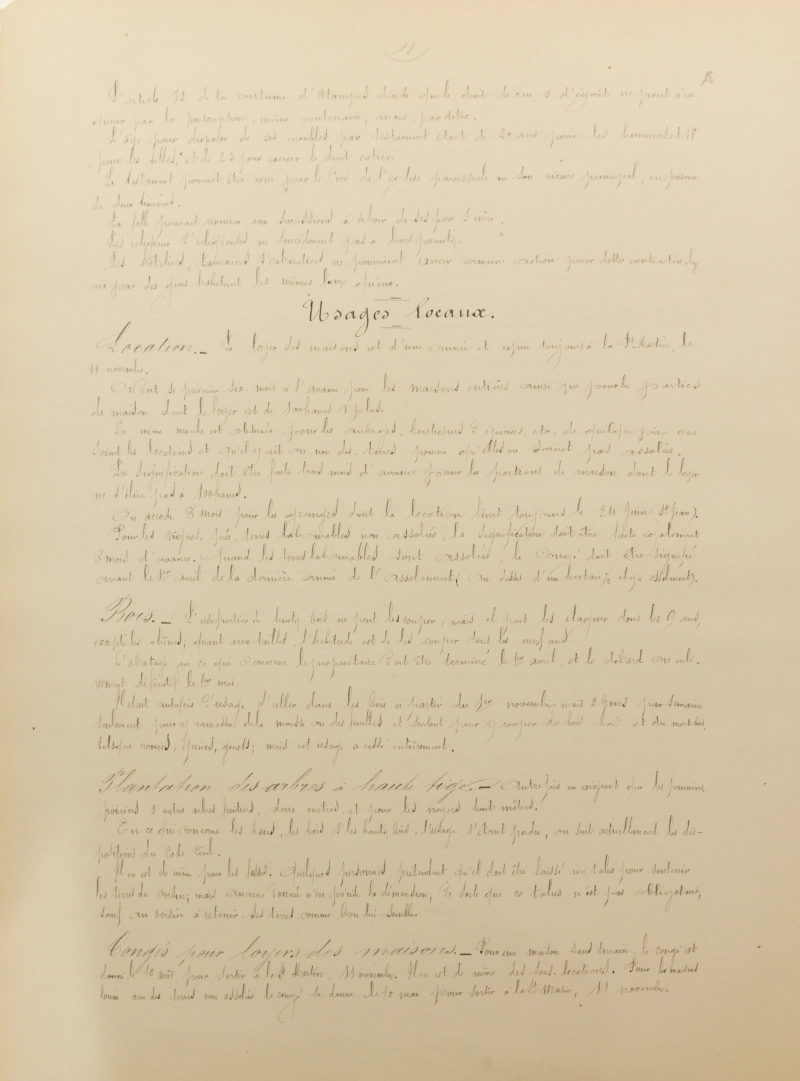 11
L'article 72 de la coutume d'Etampes décide que le droit de vue & d'égout ne peut s'ac-
quérir par la prescription, même centenaire, mais par titre.
L'âge pour disposer de ses meubles par testament était de 20 ans pour les hommes et 18
pour les filles, et de 25 pour
Le testament pouvait être reçu par le Curé de l'église paroissiale ou son vicaire principal, en présence
de deux témoins.
La fille pouvait renoncer aux successions à échoir de ses père & mère.
Les religieux & religieuses ne succédaient pas à leurs parents.
Les hôteliers, taverniers & cabaretiers ne pouvaient exercer aucune action pour dettes contractées chez
eux par des gens habitant les mêmes lieux qu'eux.
Usages locaux.
Location. — Le loyer des maisons est d'une année et expire toujours à la St Martin, le
11 novembre.
On doit se prévenir six mois à l'avance pour les maisons entières ainsi que pour les parties
de maison dont le loyer est de 100 francs & plus.
La même marche est observée pour les auberges, boutiques d'épiciers, etc. de quelque prix que
soient les locations et qu'il y ait ou non des terres, pourvu qu'elles ne soient pas assolées.
La signification doit être faite trois mois d'avance pour les portions de maison dont le loyer
ne s'élève pas à 100 francs.
On accorde 3 mois pour les granges dont la location finit toujours le 24 juin (St Jean).
Pour les vignes, prés, terres labourables non assolées, la signification doit être faite également
3 mois d'avance. Quand les terres labourables sont assolées, le Congé doit être signifié
avant le 1er avril de la dernière année de l'assolement (au dessus d'un hectare ½ il y a assolement).
Bois. — L'usufruitier de hauts bois ne peut les couper, mais il peut les élaguer tous les 9 ans,
excepté les chênes; quant aux taillis, l'habitude est de les couper tous les neuf ans.
L'abatage en ce qui concerne le propriétaire doit être terminé le 1er avril, et le débard ou enlè-
vement définitif le 1er mai.
Il était autrefois d'usage d'aller dans les bois à partir du 1er novembre mais 2 jours par semaine
seulement pour y ramasser de la mousse ou des feuilles et surtout pour y couper du bois mort et du mort bois,
tels que ronces, épines, genets; mais cet usage a cessé entièrement.
Plantation des arbres à haute tige. — Autrefois on exigeait que les pommiers,
poiriers & autres arbres fruitiers, deux mètres, et pour les noyers huit mètres.
En ce qui concerne les haies, les bois & les hauts bois, l'usage s'étant perdu, on suit actuellement les dis-
positions du Code Civil.
Il en est de même pour les fossés. Quelques personnes prétendent qu'il doit être laissé un talus pour soutenir
les terres du voisin; mais aucune donnée n'en précise la dimension, de sorte que ce talus n'est pas obligatoire,
sauf au voisin à retenir ses terres comme bon lui semble.
Congés pour loyers des maisons. — Pour une maison sans terrain, le congé est
donné le 10 août pour sortir à la St Martin, 11 novembre. Il en est de même des sous-locations. Pour les maisons
louées avec des terres non assolées le congé se donne le 10 mai pour sortir à la St Martin, 11 novembre.